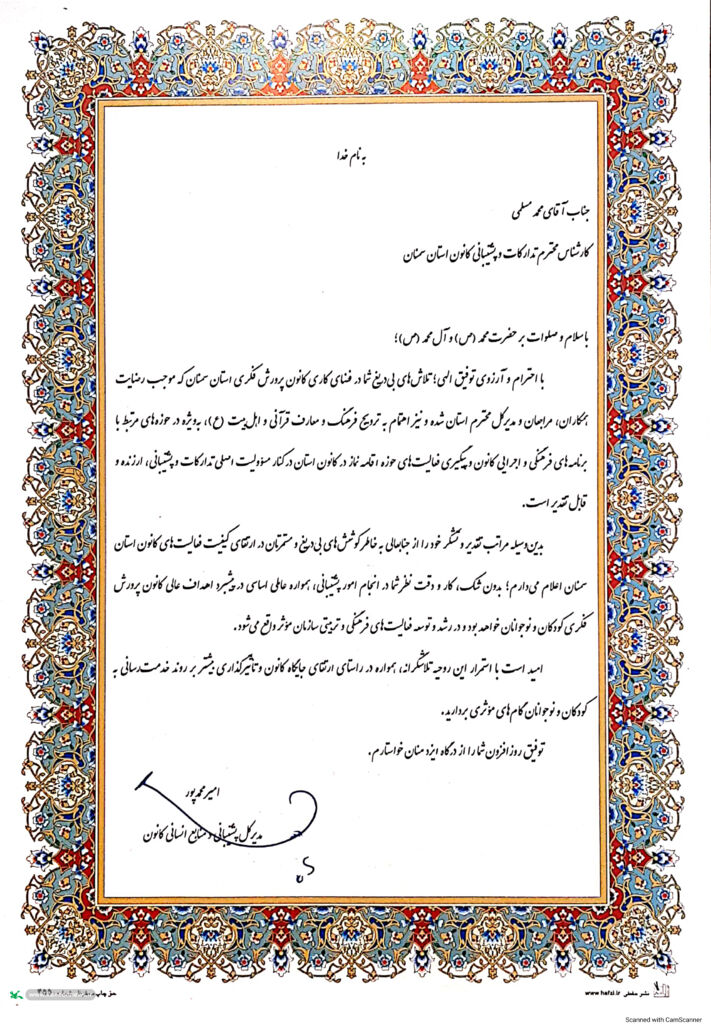 به نام خدا
جناب آقای محمد مسلمی
کارشناس محترم تدارکات و پشتیبانی کانون استان سمنان
با سلام و صلوات بر حضرت محمد (ص) و آل محمد (ص)؛
با احترام و آرزوی توفیق الهی؛ تلاش‌های بی‌دریغ شما در فضای کاری کانون پرورش فکری استان سمنان که موجب رضایت
همکاران، مراجعان و مدیرکل محترم استان شده و نیز اهتمام به ترویج فرهنگ و معارف قرآنی و اهل بیت (ع)، به‌ویژه در حوزه‌های مرتبط با
برنامه‌های فرهنگی و اجرایی کانون و پیگیری فعالیت‌های حوزه اقامه نماز در کانون استان در کنار مسؤولیت اصلی تدارکات و پشتیبانی، ارزنده و
قابل تقدیر است.
بدین وسیله مراتب تقدیر و تشکر خود را از جنابعالی به خاطر کوشش‌های بی‌دریغ و مستمرتان در ارتقای کیفیت فعالیت‌های کانون استان
سمنان اعلام می‌دارم؛ بدون شک، کار و دقت نظر شما در انجام امور پشتیبانی، همواره عاملی اساسی در پیشبرد اهداف عالی کانون پرورش
فکری کودکان و نوجوانان خواهد بود و در رشد و توسعه فعالیت‌های فرهنگی و تربیتی سازمان مؤثر واقع می‌شود.
امید است با استمرار این روحیه تلاشگرانه، همواره در راستای ارتقای جایگاه کانون و تأثیرگذاری بیشتر بر روند خدمت‌رسانی به
کودکان و نوجوانان گام‌های مؤثری بردارید.
توفیق روزافزون شما را از درگاه ایزد منان خواستارم.
امیر محمدپور
مدیرکل پشتیبانی و منابع انسانی کانون
حق چاپ
نشر حفظی www.hafzi.ir
Scanned with CamScanner